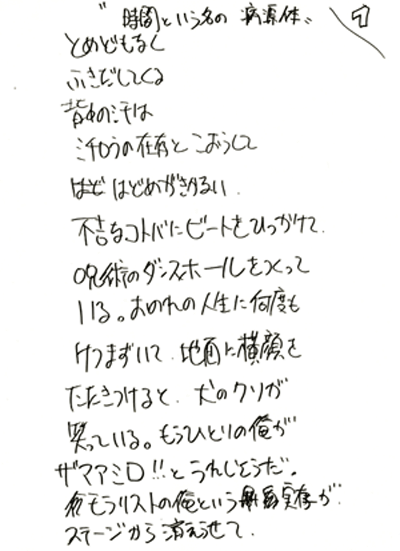 "時間という名の 病源体" 1
とめどもなく
ふきだしてくる
背中の汗は
ミチロウの在有と こおうして
はど はどめがきかない.
不吉なコトバにビートをひっかけて.
呪術のダンスホールをつくって
いる。おのれの人生に何度も
けつまずいて 地面に横顔を
たたきつけると、犬のクソが
笑っている。もうひとりの俺が
ザマアミロ!!とうれしそうだ。
もうリストの俺という 実存が
ステージから消えうせて.